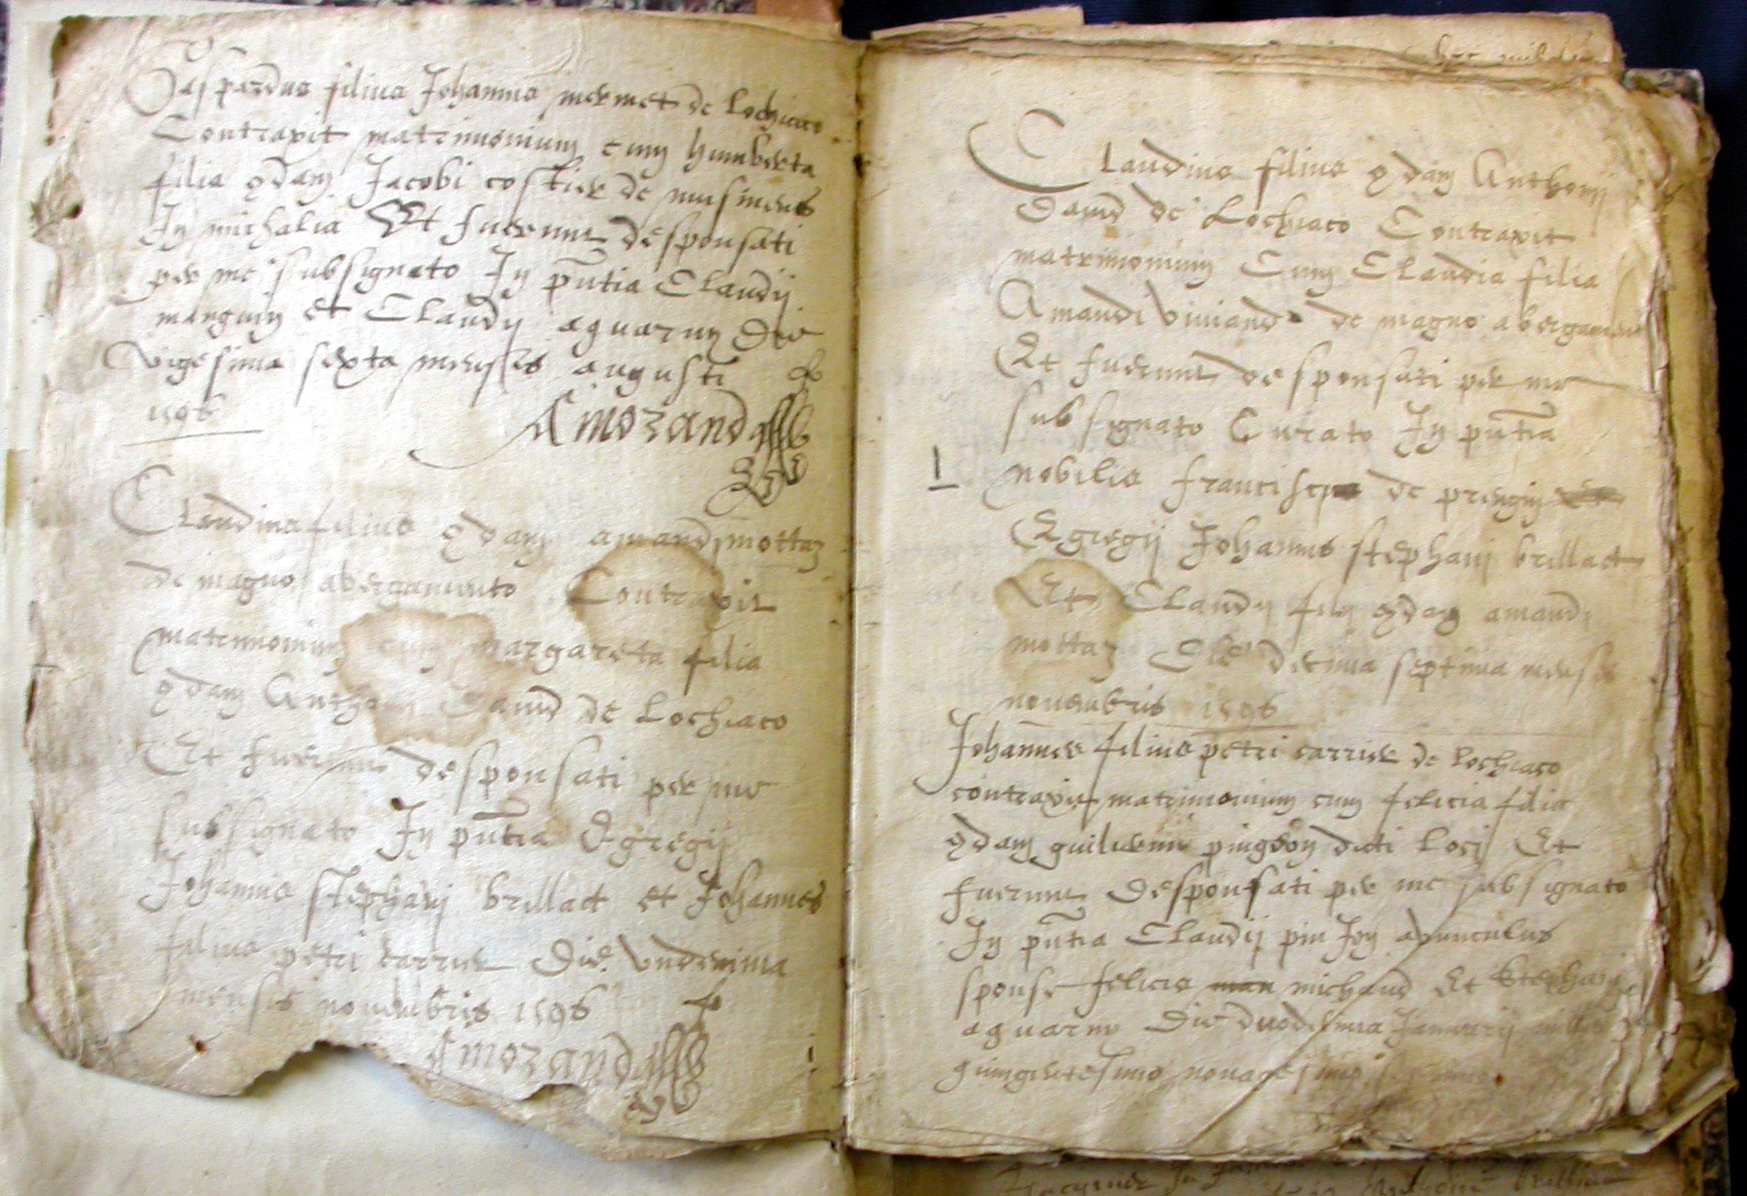 Gaspardus filius Johannis mermet de Lochiaco
Contraxit matrimonium cum humberta
filia qdam Jacobi costier de musinens
In michalia Et fuerunt desponsati
per me subsignato In pntia Claudij
manguin et Claudij aquarum Die
vigesima sexta mensis augusti
1596
Amorand
Claudius filius qdam amandi mottaz
de magno abergamento Contraxit
matrimonium cum margareta filia
qdam Anthonij David de Lochiaco
Et fuerunt desponsati per me
subsignato In pntia Egregij
Johannis stephani brillact et Johannes
filius petri carrier Die undecima
mensis novembris 1596
Amorand
Claudius filius qdam Anthonij
David de Lochiaco Contraxit
matrimonium Cum Claudia filia
Amandi viviand de magno abergamento
Et fuerunt desponsati per me
subsignato Curato In pntia
nobilis francisci de
Egregij Johannis stephani brillact
Et Claudij filij qdam amandi
mottaz Die decima septima mensis
novembris 1596
Johannes filius petri carrier de lochiaco
contraxit matrimonium cum felicia filia
qdam guillermi pingeon dicti Locj Et
fuerunt desponsati per me subsignato
In pntia Claudij avunculus
sponse felicis michaud Et stephani
aquarum Die duodecima Januarij
quingentesimo nonagesimo